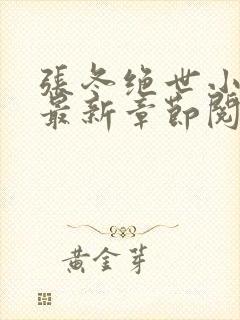 張冬绝世小
最新章節閱
黄金芽